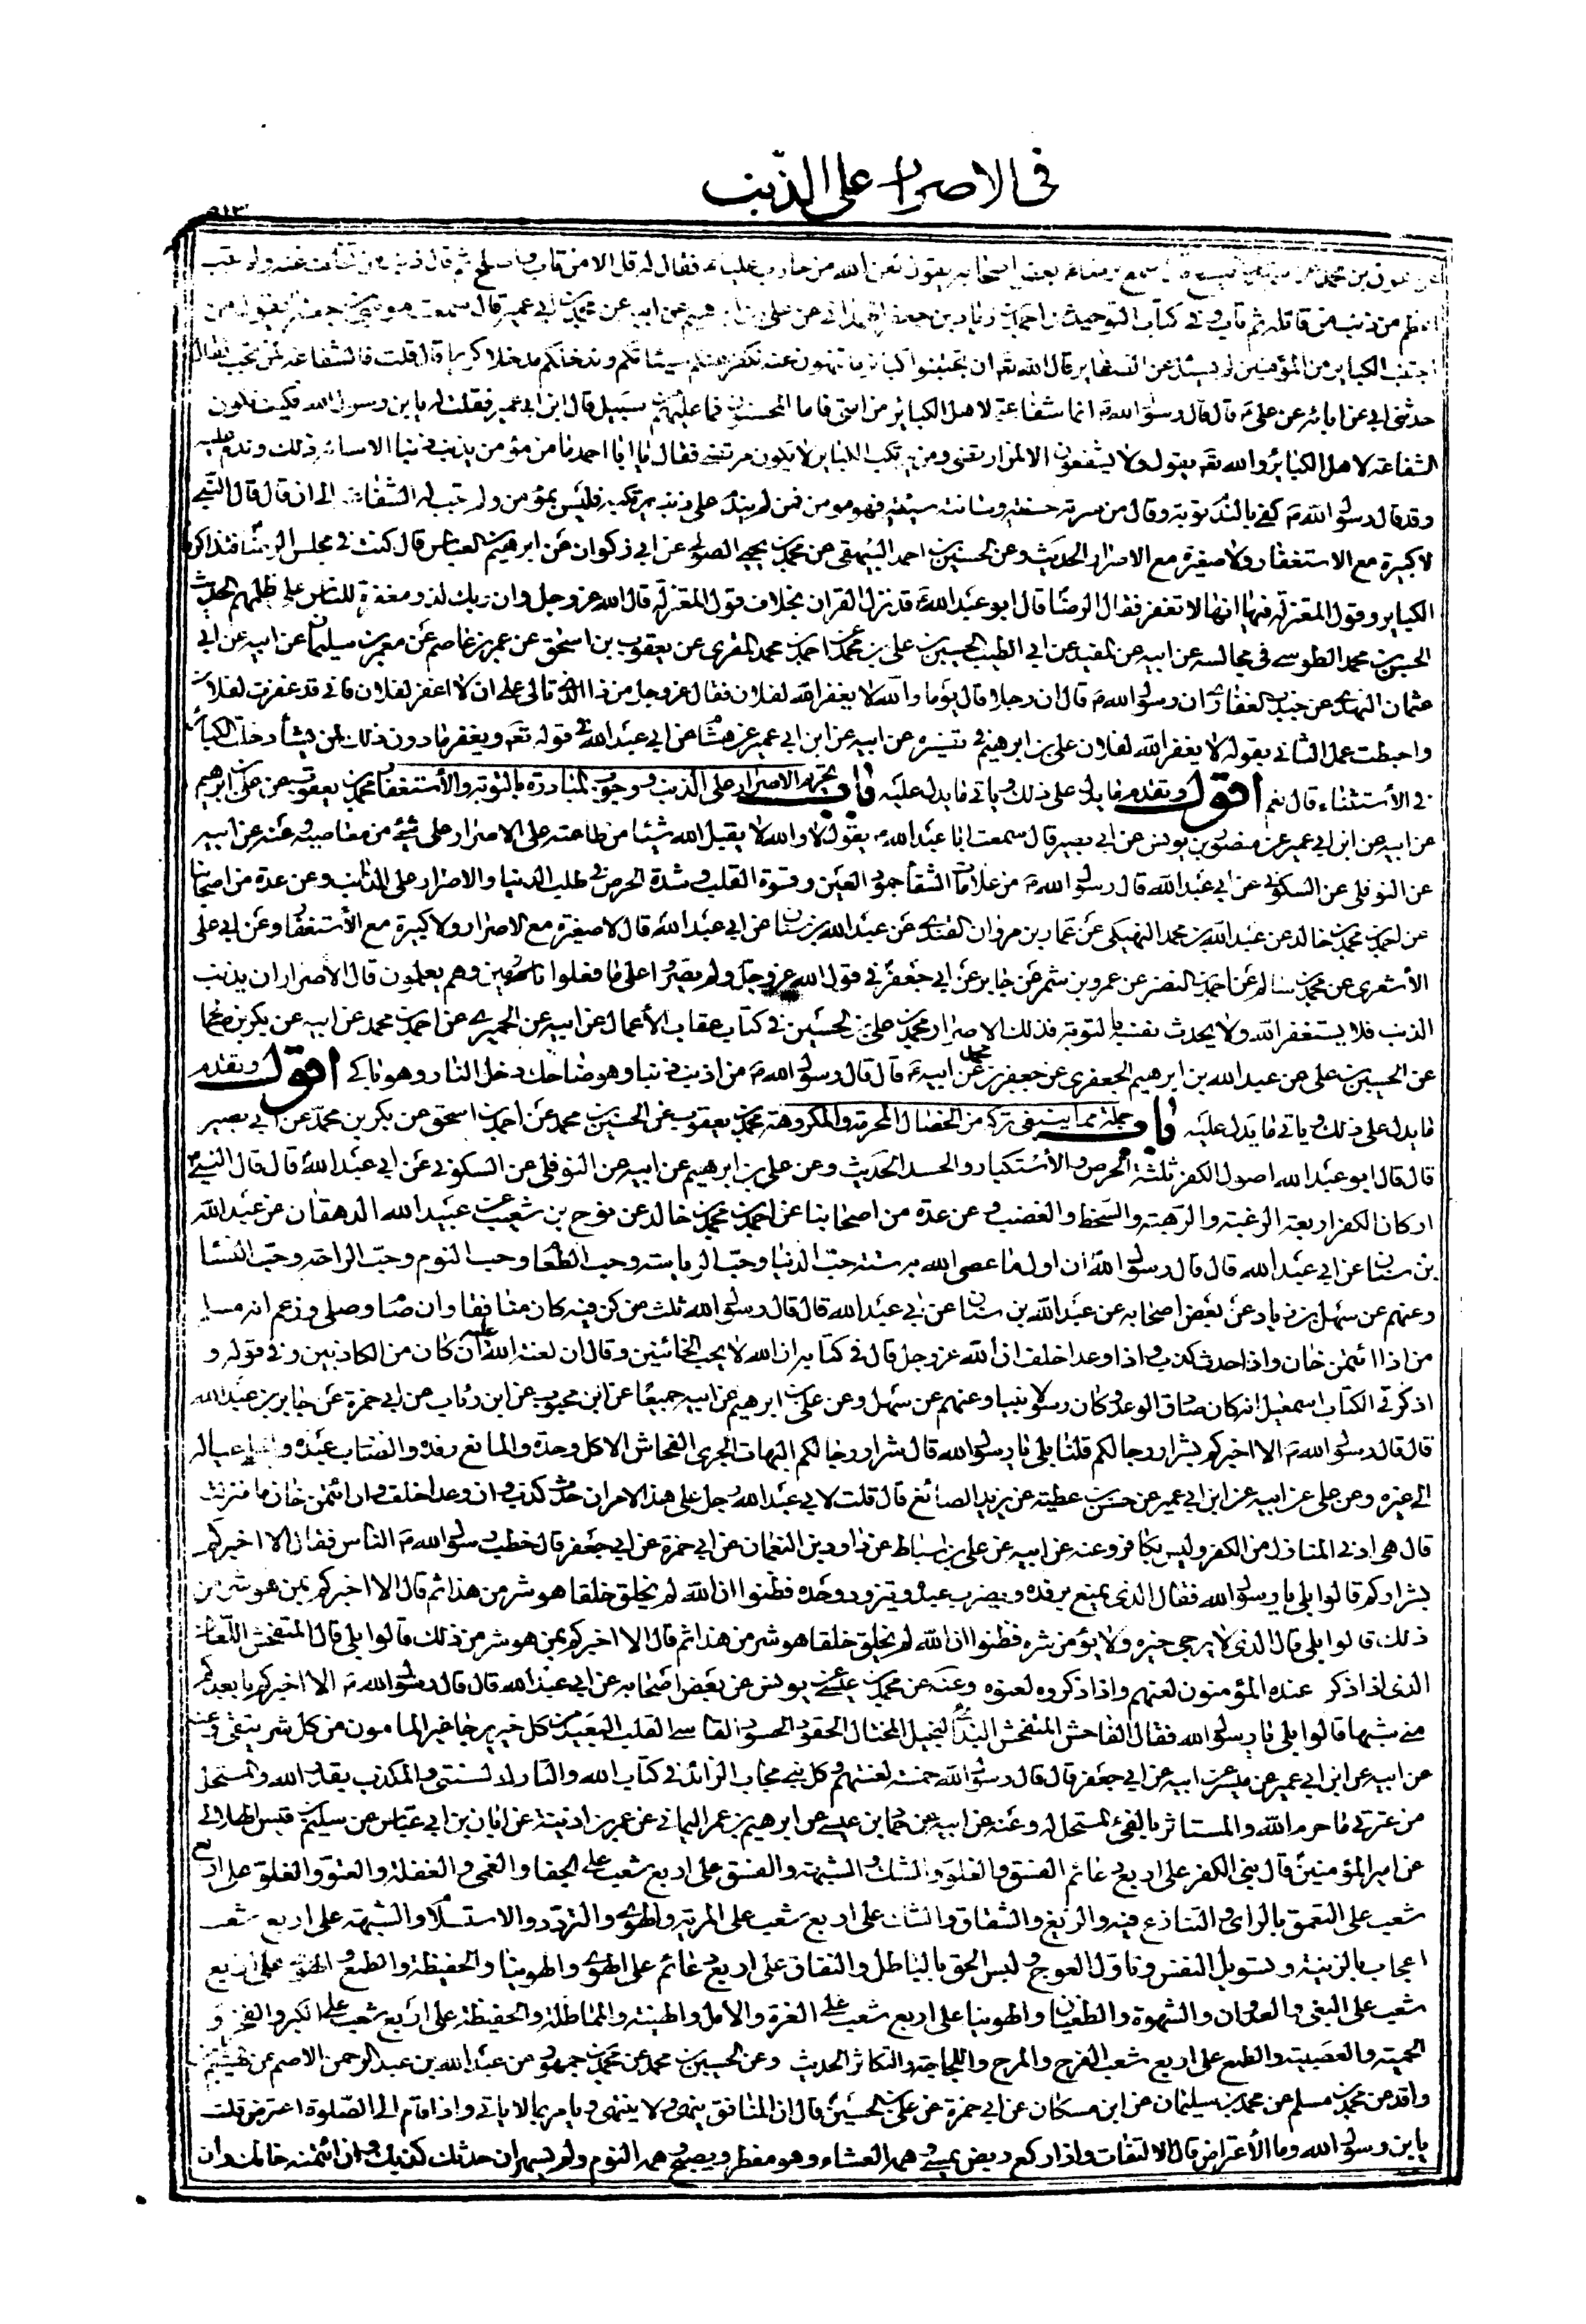 في الاصرار على الذنب
فقال له قل الا من تاب و
اعظم من ذنب من قاتله ثم تاب وفي كتاب التوحيد عن احمد بن زياد بن جعفر الهمداني عن علي بن ابرهيم عن ابيه عن محمد بن ابي عمير قال سمعت موسى بن جعفر يقول من
اجتنب الكباير من المؤمنين لم يسئل عن الصغاير قال الله تعه ان تجتنبوا كباير ما تنهون عنه نكفر عنكم سيئاتكم وندخلكم مدخلا كريما قال قلت فالشفاعة لمن تجب فقال
حدثني ابي عن ابائه عن علي ع قال قال رسول الله ص انما شفاعتي لاهل الكبائر من امتي فاما المحسنون فما عليهم من سبيل قال ابن ابي عمير فقلت له يا بن رسول الله فكيف تكون
الشفاعة لاهل الكبائر والله تعه يقول ولا يشفعون الا لمن ارتضى ومن يرتكب الكباير لا يكون مرتضى فقال يا ابا احمد ما من مؤمن يذنب ذنبا الا ساءه ذلك وندم عليه
وقد قال رسول الله ص كفى بالندم توبة وقال من سرته حسنته وساءته سيئته فهو مومن فمن لم يندم على ذنب يرتكبه فليس بمؤمن ولم تجب له الشفاعة الى ان قال قال النبي
لا كبيرة مع الاستغفار ولا صغيرة مع الاصرار الحديث وعن الحسين بن احمد البيهقي عن محمد بن يحيى الصولي عن ابي ذكوان عن ابرهيم بن العباس قال كنت في مجلس الرضا فتذاكروا
الكباير وقول المعتزلة فيها انها لا تغفر فقال الرضا قال ابو عبد الله ع قد نزل القران بخلاف قول المعتزلة قال الله عز وجل وان ربك لذو مغفرة للناس على ظلمهم الحديث
الحسن بن محمد الطوسي في مجالسه عن ابيه عن المفيد عن ابي الطيب الحسين بن علي بن محمد عن احمد بن محمد المقري عن يعقوب بن اسحق عن عمر بن عاصم عن معمر بن سليمان عن ابيه عن ابي
عثمان النهدي عن جندب الغفاري ان رسول الله ص قال ان رجلا قال يوما والله لا يغفر الله لفلان فقال عز وجل من ذا الذي تالى على ان لا اغفر لفلان فاني قد غفرت لفلان
واحبطت عمل الثاني بقوله لا يغفر الله لفلان علي بن ابرهيم في تفسيره عن ابيه عن ابن ابي عمير عن هشام عن ابي عبد الله ع في قوله تعه ويغفر ما دون ذلك لمن يشاء دخلت الكبائر
في الاستثناء قال نعم اقول وتقدم ما يدل على ذلك وياتي ما يدل عليه باب تحريم الاصرار على الذنب ووجوب المبادرة بالتوبة والاستغفار محمد بن يعقوب عن علي بن ابرهيم
عن ابيه عن ابن ابي عمير عن منصور بن يونس عن ابي بصير قال سمعت ابا عبد الله ع يقول لا والله لا يقبل الله شيئا من طاعته على الاصرار على شئ من معاصيه وعنه عن ابيه
عن النوفلي عن السكوني عن ابي عبد الله قال رسول الله ص من علامات الشقاء جمود العين وقسوة القلب وشدة الحرص في طلب الدنيا والاصرار على الذنب وعن عدة من اصحابنا
عن احمد بن محمد بن خالد عن عبد الله بن محمد النهيكي عن عمار بن مروان القندي عن عبد الله بن سنان عن ابي عبد الله قال لا صغيرة مع الاصرار ولا كبيرة مع الاستغفار وعن ابي علي
الاشعري عن محمد بن سالم عن احمد بن النضر عن عمرو بن شمر عن جابر عن ابي جعفر في قول الله عز وجل ولم يصروا على ما فعلوا وهم يعلمون قال الاصرار ان يذنب
الذنب فلا يستغفر الله ولا يحدث نفسه بالتوبة فذلك الاصرار محمد بن علي بن الحسين في كتاب عقاب الأعمال عن ابيه عن الحميري عن احمد بن محمد عن ابيه عن بكر بن
عن الحسين بن علي عن عبد الله بن ابرهيم الجعفري عن جعفر بن محمد عن ابيه ع قال قال رسول الله ص من اذنب ذنبا وهو ضاحك دخل النار وهو باك اقول وتقدم
ما يدل على ذلك وياتي ما يدل عليه باب جملة مما ينبغي تركه من الخصال المحرمة والمكروهة محمد بن يعقوب عن الحسين بن محمد عن احمد بن اسحق عن بكر بن محمد عن ابي بصير
قال قال ابو عبد الله اصول الكفر ثلثة الحرص والاستكبار والحسد الحديث وعن علي بن ابرهيم عن ابيه عن النوفلي عن السكوني عن ابي عبد الله قال قال النبي
اركان الكفر اربعة الرغبة والرهبة والسخط والغضب وعن عدة من اصحابنا عن احمد بن محمد بن خالد عن نوح بن شعيب عن عبيد الله الدهقان عن عبد الله
بن سنان عن ابي عبد الله قال قال رسول الله ان اول ما عصى الله به ستة حب الدنيا وحب الرياسة وحب الطعام وحب النوم وحب الراحة وحب النساء
وعنهم عن سهل بن زياد عن بعض اصحابه عن عبد الله بن سنان عن ابي عبد الله قال قال رسول الله ثلث من كن فيه كان منافقا وان صام وصلى وزعم انه مسلم
من اذا ائتمن خان واذا حدث كذب واذا وعد اخلف ان الله عز وجل قال في كتابه ان الله لا يحب الخائنين وقال ان لعنة الله عليه ان كان من الكاذبين وفي قوله و
اذكر في الكتاب اسمعيل انه كان صادق الوعد وكان رسولا نبيا وعنهم عن سهل وعن علي بن ابرهيم عن ابيه جميعا عن ابن محبوب عن ابن رئاب عن ابي حمزة عن جابر بن عبد الله
قال قال رسول الله ص الا اخبركم بشرار رجالكم قلنا بلى يا رسول الله قال شرار رجالكم البهات الجرئ الفحاش الاكل وحده والمانع رفده والضارب عبده و عياله
الى غيره وعن علي عن ابيه عن ابن ابي عمير عن حسن بن عطية عن يزيد الصائغ قال قلت لابي عبد الله رجل على هذا الامر ان حدث كذب وان وعد اخلف وان ائتمن خان ما منزلته
قال هي ادنى المنازل من الكفر وليس بكافر وعنه عن ابيه عن علي بن اسباط عن داود بن النعمان عن ابي حمزة عن ابي جعفر قال خطب رسول الله ص الناس فقال الا اخبركم
بشراركم قالوا بلى يا رسول الله فقال الذي يمنع رفده ويضرب عبده ويتزود وحده فظنوا ان الله لم يخلق خلقا هو شر من هذا ثم قال الا اخبركم بمن هو شر من
ذلك قالوا بلى قال الذي لا يرجى خيره ولا يؤمن شره فظنوا ان الله لم يخلق خلقا هو شر من هذا ثم قال الا اخبركم بمن هو شر من ذلك قالوا بلى قال المتفحش اللعان
الذي اذا ذكر عنده المؤمنون لعنهم واذا ذكروه لعنوه وعنه عن محمد بن عيسى عن يونس عن بعض اصحابه عن ابي عبد الله قال قال رسول الله ص الا اخبركم بابعدكم
مني شبها قالوا بلى يا رسول الله فقال الفاحش المتفحش البذي البخيل المختال الحقود الحسود القاسي القلب البعيد من كل خير يرجا غير المامون من كل شر يتقى وعنه
عن ابيه عن ابن ابي عمير عن ميسر عن ابيه عن ابي جعفر قال قال رسول الله خمسة لعنتهم وكل نبي مجاب الزائد في كتاب الله والتارك لسنتي والمكذب بقدر الله والمستحل
من عترتي ما حرم الله والمستاثر بالفئ المستحل له وعنه عن ابيه عن حماد بن عيسى عن ابرهيم بن عمر اليماني عن عمر بن اذينة عن ابان بن ابي عياش عن سليم بن قيس الهلالي
عن امير المؤمنين قال بني الكفر على اربع دعائم الفسق والغلو والشك والشبهة والفسق على اربع شعب على الجفا والعمى والغفلة والعتو والغلو على اربع
شعب على التعمق بالراى والتنازع فيه والزيغ والشقاق والشك على اربع شعب على المرية والهوى والتردد والاستسلام والشبهة على اربع شعب
اعجاب بالزينة وتسويل النفس وتاول العوج ولبس الحق بالباطل والنفاق على اربع دعائم على الهوى والهوينا والحفيظة والطمع والهوى على اربع
شعب على البغي والعدوان والشهوة والطغيان والهوينا على اربع شعب على الغرة والامل والهيبة والمماطلة والحفيظة على اربع شعب على الكبر والفخر و
الحمية والعصبية والطمع على اربع شعب الفرح والمرح واللجاجة والتكاثر الحديث وعن الحسين بن محمد عن محمد بن جمهور عن عبد الله بن عبد الرحمن الاصم عن الهيثم بن
واقد عن محمد بن مسلم عن محمد بن سليمان عن ابن مسكان عن ابي حمزة عن علي بن الحسين قال ان المنافق ينهى ولا ينتهى ويامر بما لا ياتي واذا قام الى الصلوة اعترض قلت
يا بن رسول الله وما الاعتراض قال الالتفات واذا ركع ربض يمسي وهمه العشاء وهو مفطر ويصبح وهمه النوم ولم يسهر ان حدثك كذبك وان ائتمنته خانك وان